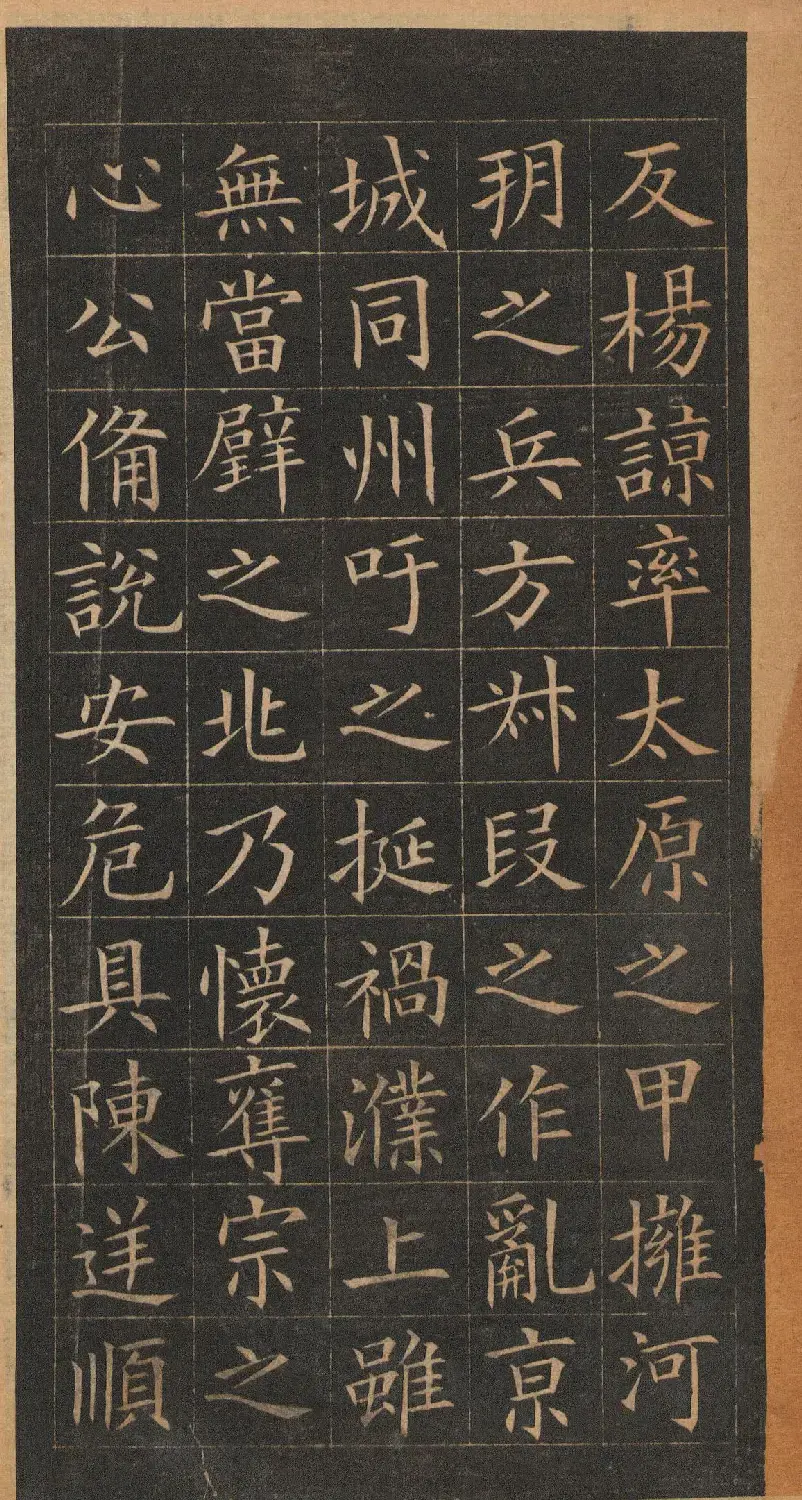 反楊諒率太原之甲擁河
朔之兵方叔段之作亂京
城同州吁之挻禍濮上雖
無當璧之兆乃懷奪宗之
心公備說安危具陳逆順